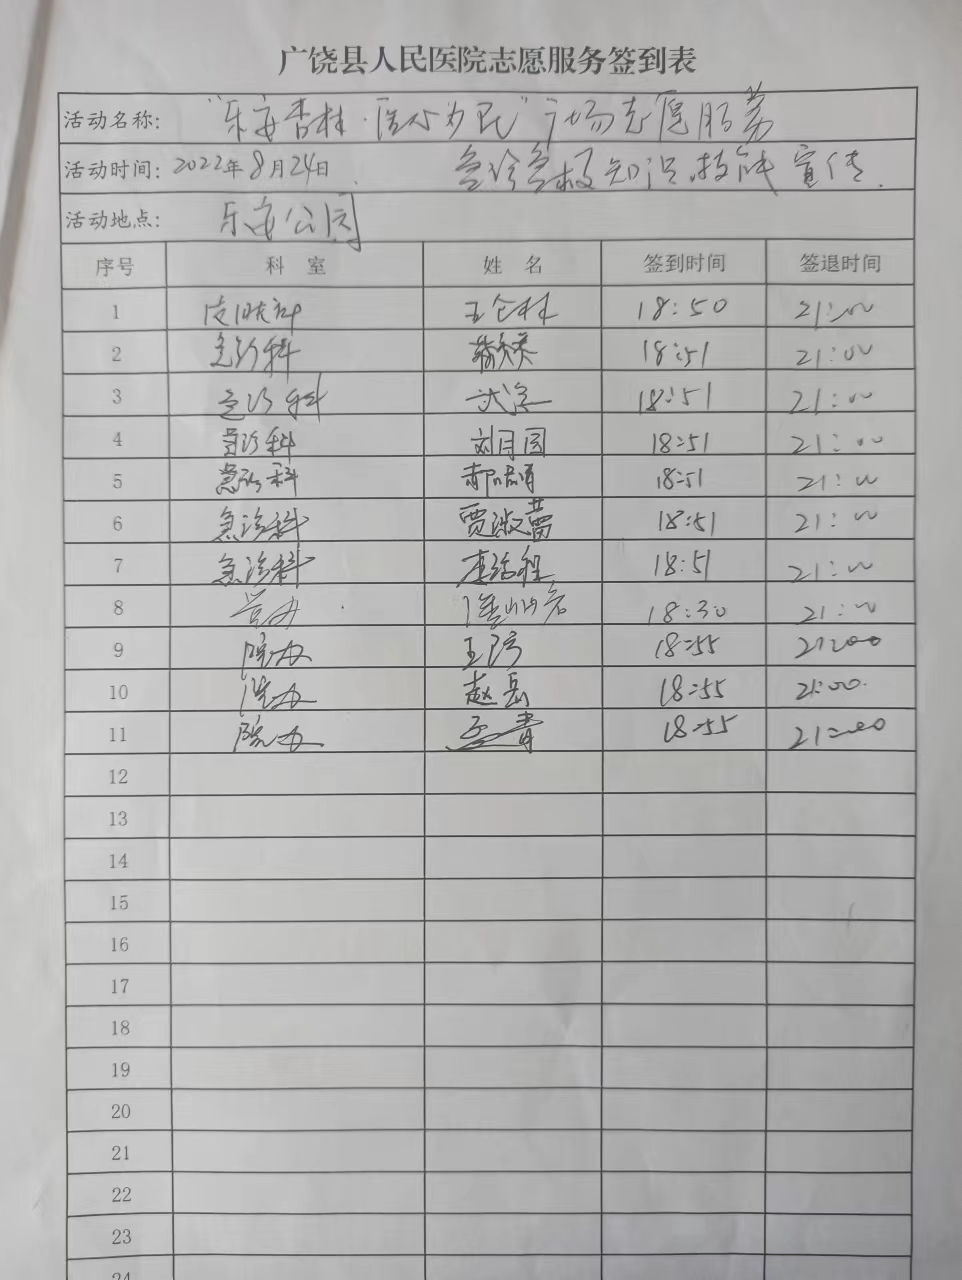 广饶县人民医院志愿服务签到表
活动名称: "乐安杏林·医心为民"广场志愿服务
活动时间: 2022年8月24日 急诊急救知识技能宣传
活动地点: 乐安公园
序号 科室 姓名 签到时间 签退时间
1 皮肤科 18:50 21:00
2 急诊科 18:51 21:00
3 急诊科 18:51 21:00
4 急诊科 刘月圆 18:51 21:00
5 急诊科 18:51 21:00
6 急诊科 贾淑蕾 18:51 21:00
7 急诊科 18:51 21:00
8 党办 18:30 21:00
9 院办 18:55 21:00
10 院办 赵岳 18:55 21:00
11 院办 孟青 18:55 21:00
12
13
14
15
16
17
18
19
20
21
22
23
24